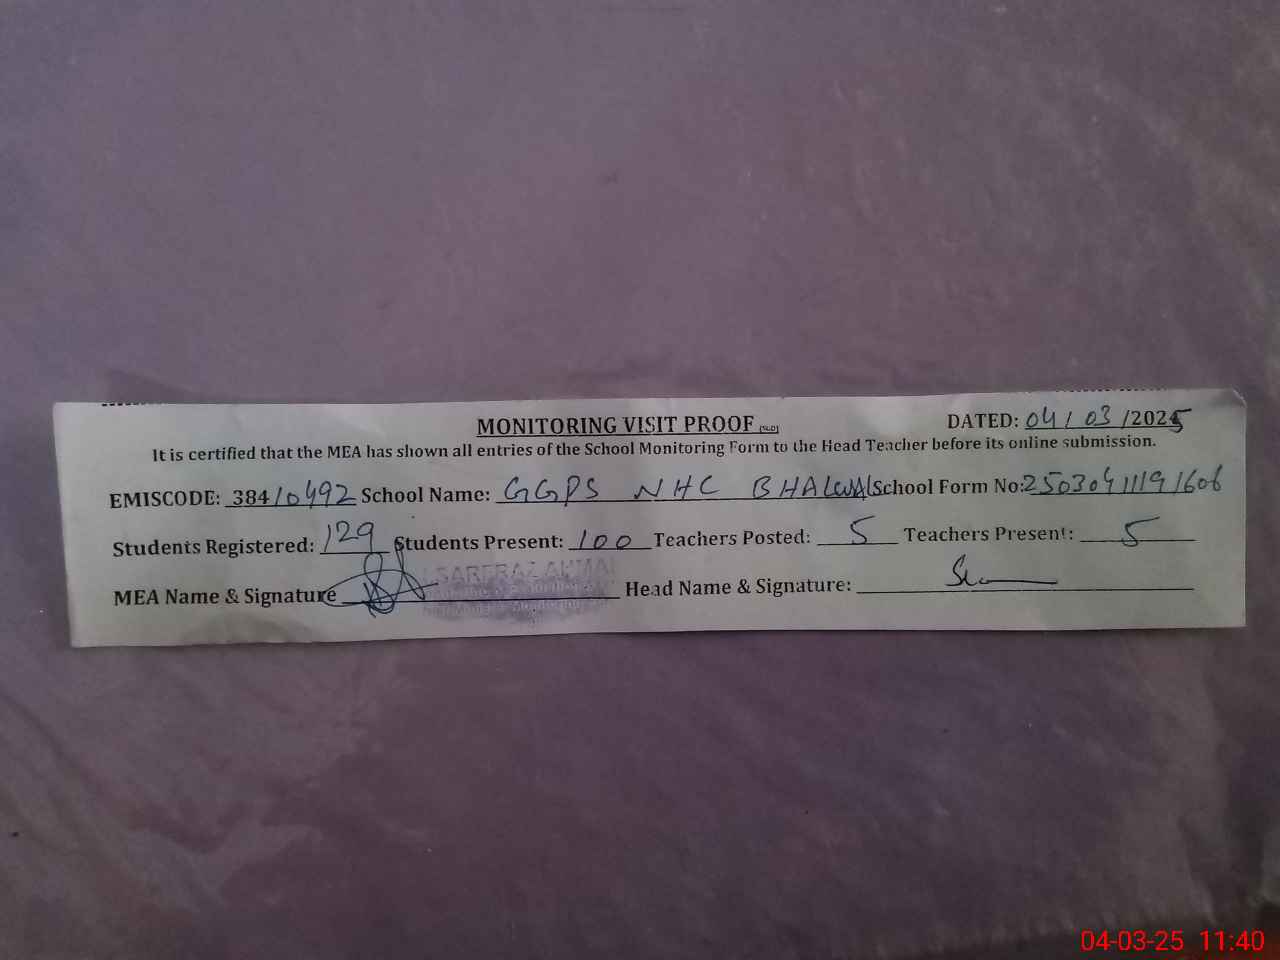 MONITORING VISIT PROOF (SLO) DATED: 04/03/2025
It is certified that the MEA has shown all entries of the School Monitoring Form to the Head Teacher before its online submission.
EMISCODE: 38410492 School Name: GGPS NHC BHALWAL School Form No: 25030411191606
Students Registered: 129 Students Present: 100 Teachers Posted: 5 Teachers Present: 5
MEA Name & Signature SARFRAZ AHMAD Head Name & Signature:
04-03-25 11:40